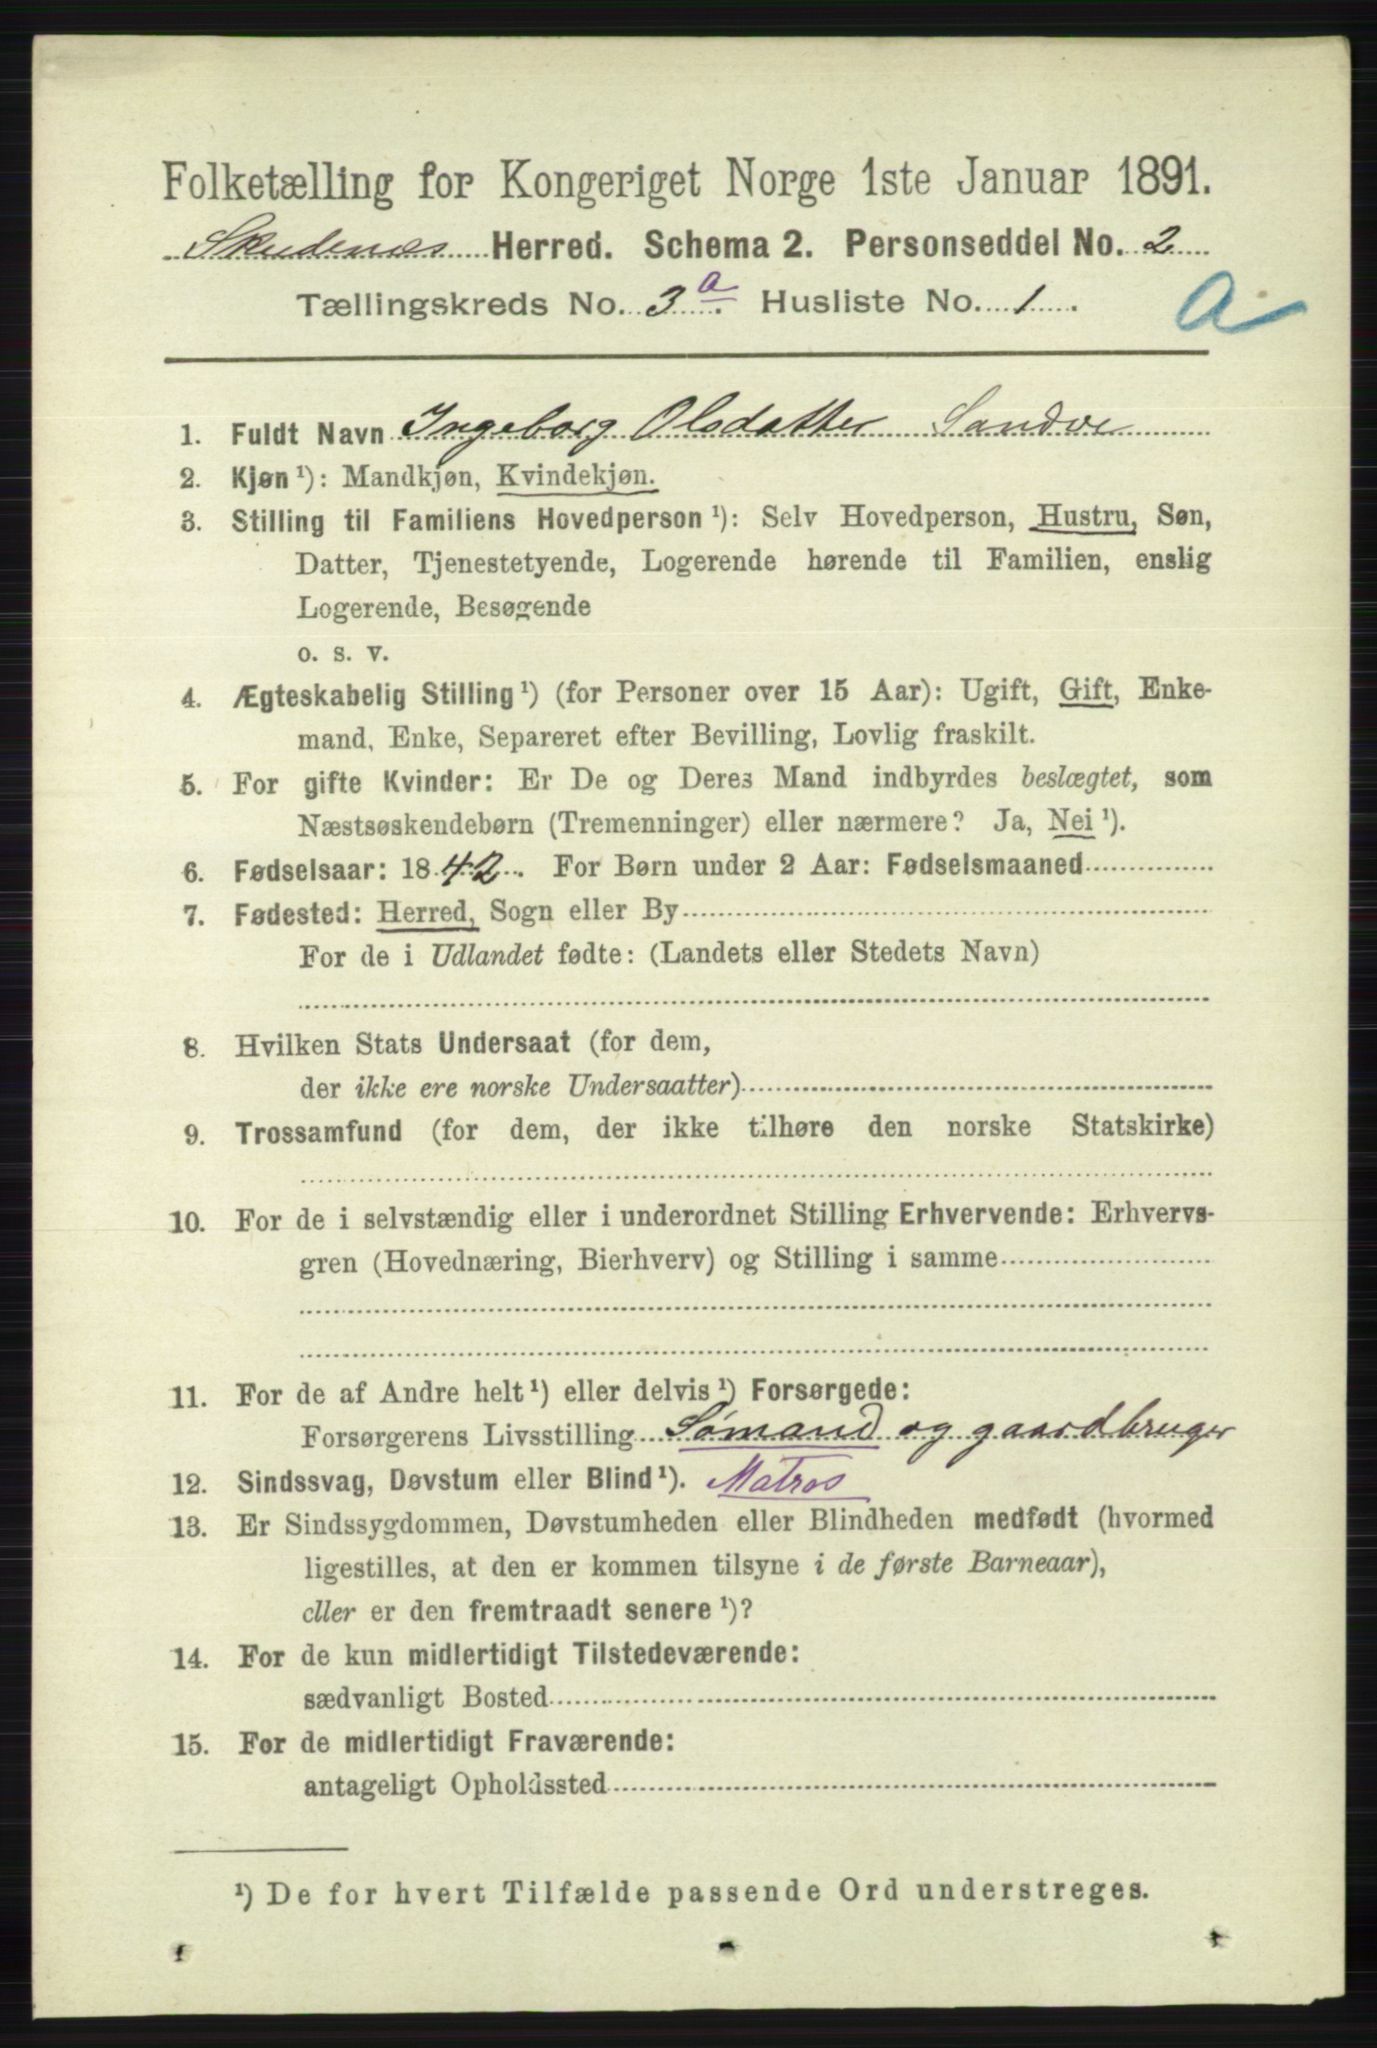 Folketælling for Kongeriget Norge 1ste Januar 1891.
Skudenæs Herred. Schema 2. Personseddel No. 2
Tællingskreds No. 3 a. Husliste No. 1.
A
1. Fuldt Navn Ingeborg Olsdatter Sandve
2. Kjøn ¹): Mandkjøn, Kvindekjøn.
3. Stilling til Familiens Hovedperson ¹): Selv Hovedperson, Hustru, Søn,
Datter, Tjenestetyende, Logerende hørende til Familien, enslig
Logerende, Besøgende
o. s. v.
4. Ægteskabelig Stilling ¹) (for Personer over 15 Aar): Ugift, Gift, Enke-
mand, Enke, Separeret efter Bevilling, Lovlig fraskilt.
5. For gifte Kvinder: Er De og Deres Mand indbyrdes beslægtet, som
Næstsøskendebørn (Tremenninger) eller nærmere? Ja, Nei ¹).
6. Fødselsaar: 1842. For Børn under 2 Aar: Fødselsmaaned
7. Fødested: Herred, Sogn eller By
For de i Udlandet fødte: (Landets eller Stedets Navn)
8. Hvilken Stats Undersaat (for dem,
der ikke ere norske Undersaatter)
9. Trossamfund (for dem, der ikke tilhøre den norske Statskirke)
10. For de i selvstændig eller i underordnet Stilling Erhvervende: Erhvervs-
gren (Hovednæring, Bierhverv) og Stilling i samme
11. For de af Andre helt ¹) eller delvis ¹) Forsørgede:
Forsørgerens Livsstilling Sømand og gaardbruger
12. Sindssvag, Døvstum eller Blind ¹). Matros
13. Er Sindssygdommen, Døvstumheden eller Blindheden medfødt (hvormed
ligestilles, at den er kommen tilsyne i de første Barneaar),
eller er den fremtraadt senere ¹)?
14. For de kun midlertidigt Tilstedeværende:
sædvanligt Bosted
15. For de midlertidigt Fraværende:
antageligt Opholdssted
¹) De for hvert Tilfælde passende Ord understreges.